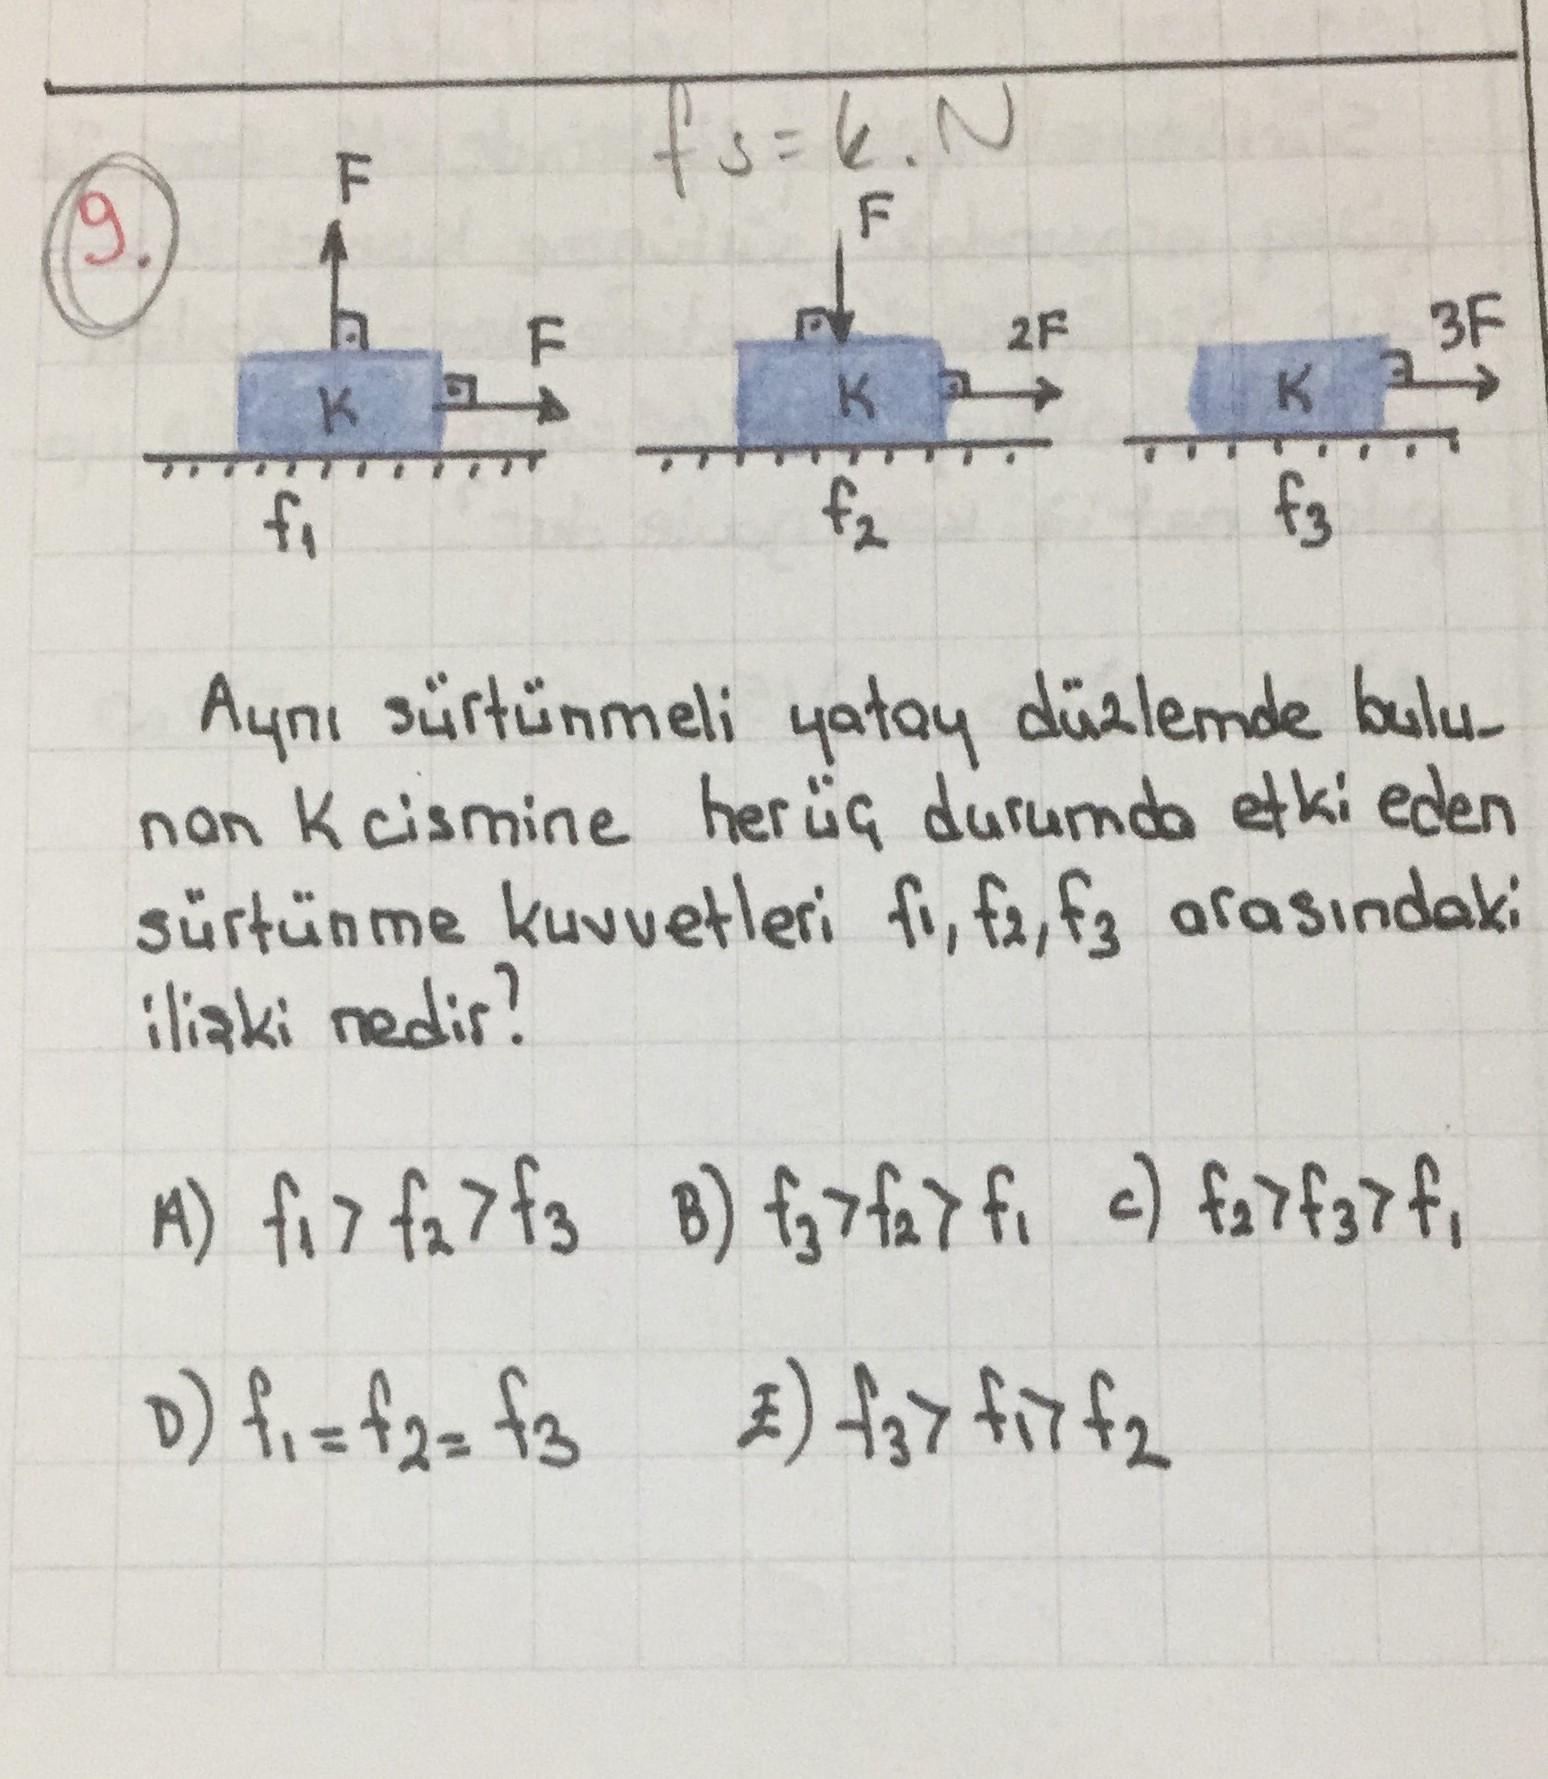 fs = k.N
9.
F F K f1
F 2F K f2
3F K f3
Aynı sürtünmeli yatay düzlemde bulu-
nan K cismine her üç durumda etki eden
sürtünme kuvvetleri f1, f2, f3 arasındaki
ilişki nedir?
A) f1 > f2 > f3 B) f3 > f2 > f1 C) f2 > f3 > f1
D) f1 = f2 = f3 E) f3 > f1 > f2